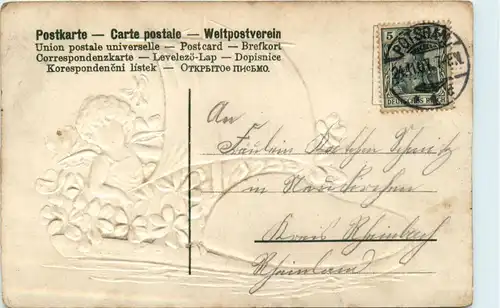 Postkarte — Carte postale — Weltpostverein
Union postale universelle — Postcard — Brefkort
Correspondenzkarte — Levelezö-Lap — Dopisnice
Korespondenční lístek — Открытое письмо.
5
POTSDAM
DEUTSCHES REICH
An
Fräulein Gretchen Schmitz
in Neukirchen
Kreis Rheinbach
Rheinland